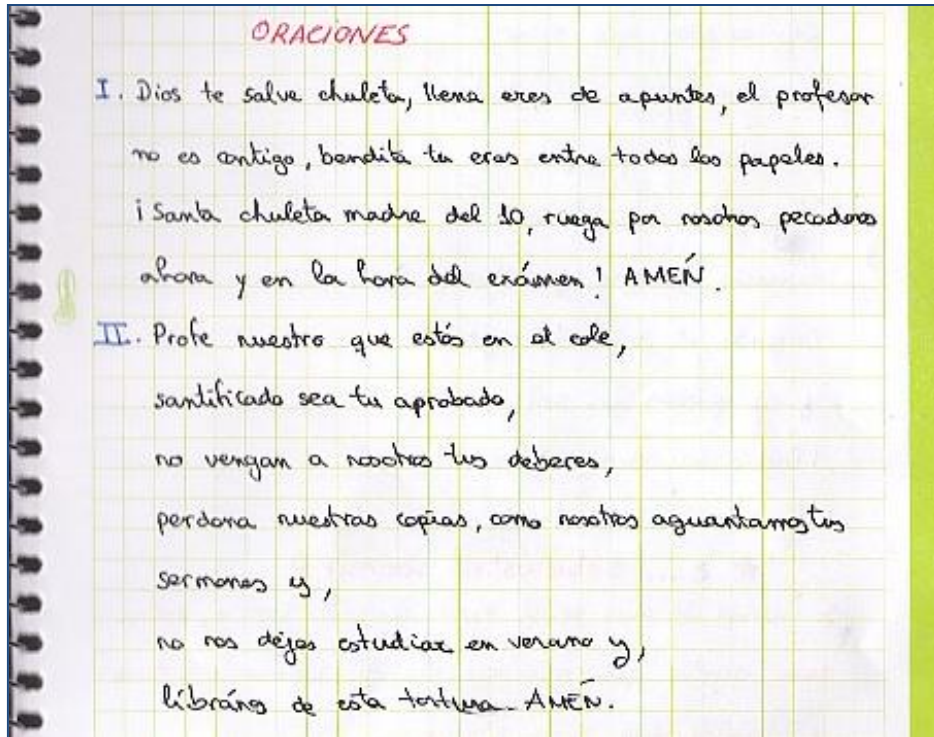 ORACIONES
I. Dios te salve chuleta, llena eres de apuntes, el profesor
no es contigo, bendita tu eres entre todos los papeles.
¡Santa chuleta madre del 10, ruega por nosotros pecadores
ahora y en la hora del exámen! AMÉN.
II. Profe nuestro que estás en el cole,
santificado sea tu aprobado,
no vengan a nosotros tus deberes,
perdona nuestras copias, como nosotros aguantamos tus
sermones y,
no nos dejes estudiar en verano y,
librános de esta tortura. AMÉN.